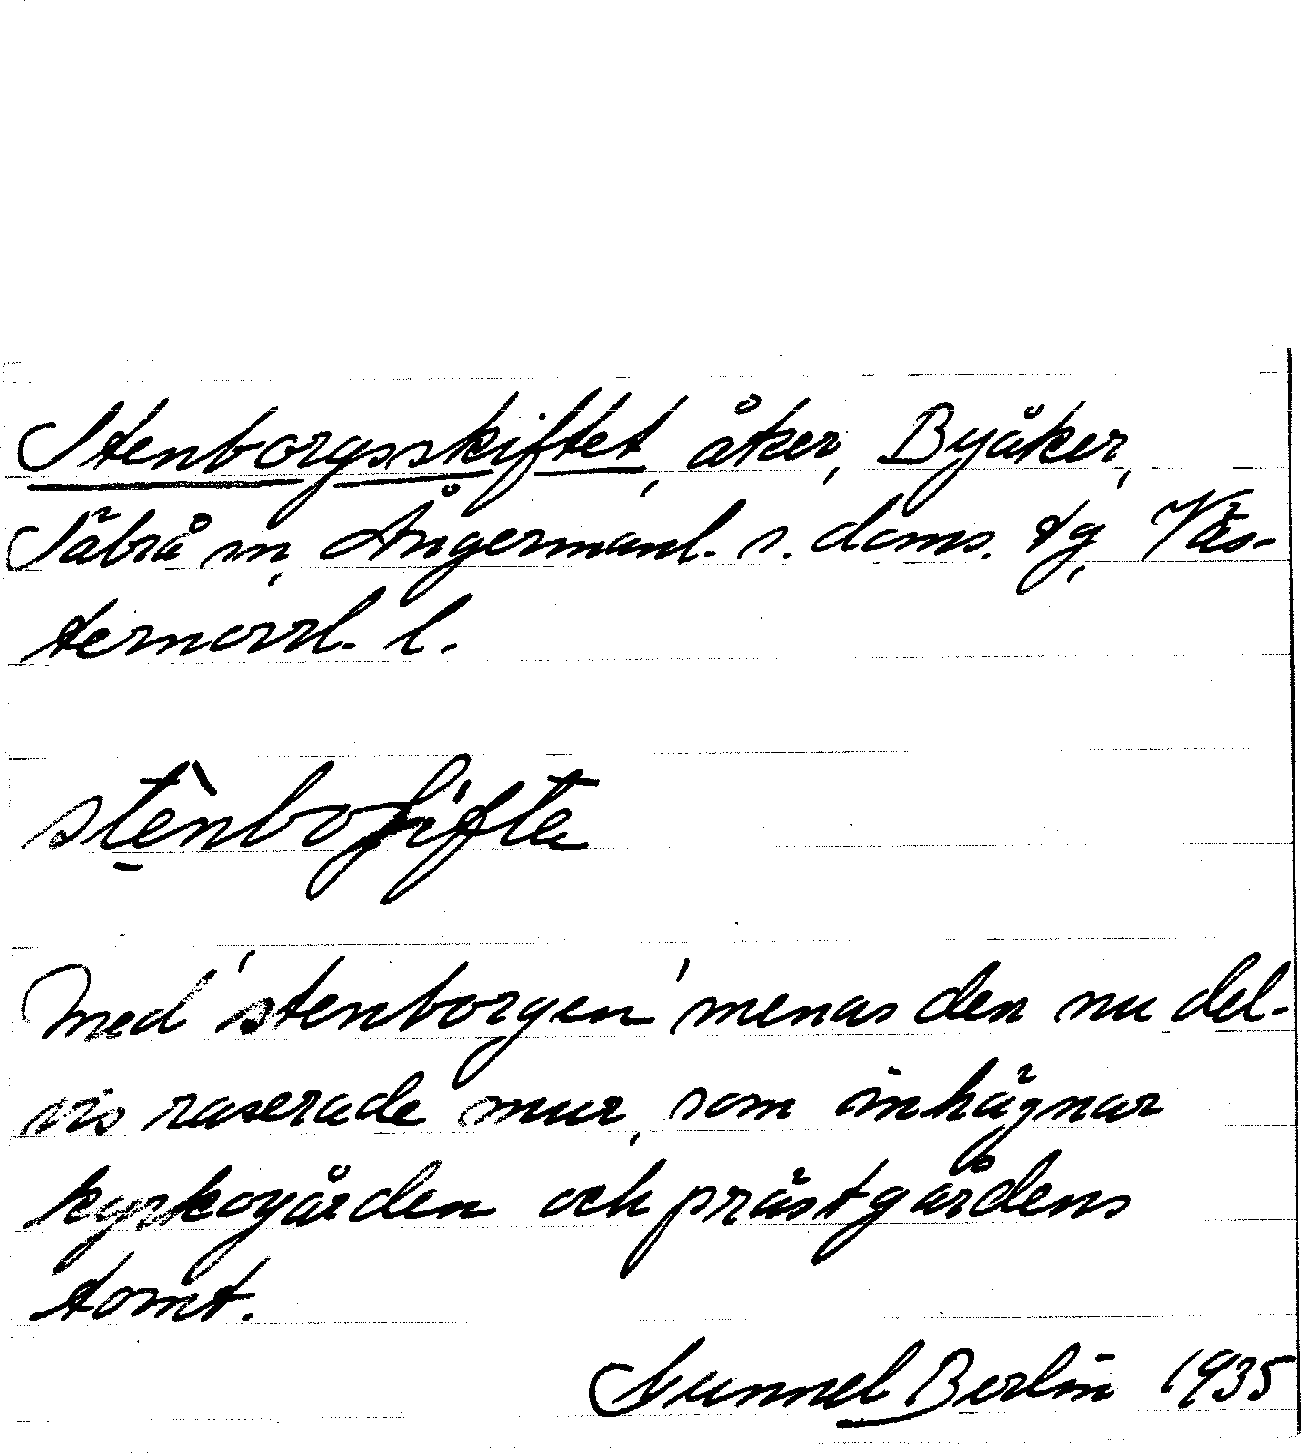 Stenborgsskiftet, åker, Byåker,
Säbrå sn, Ångermanl. s. doms. tg, Väs-
ternorrl. l.
Med 'stenborgen' menas den nu del-
vis raserade mur, som inhägnar
kyrkogården och prästgårdens
tomt.
Gunnel Berlin 1935